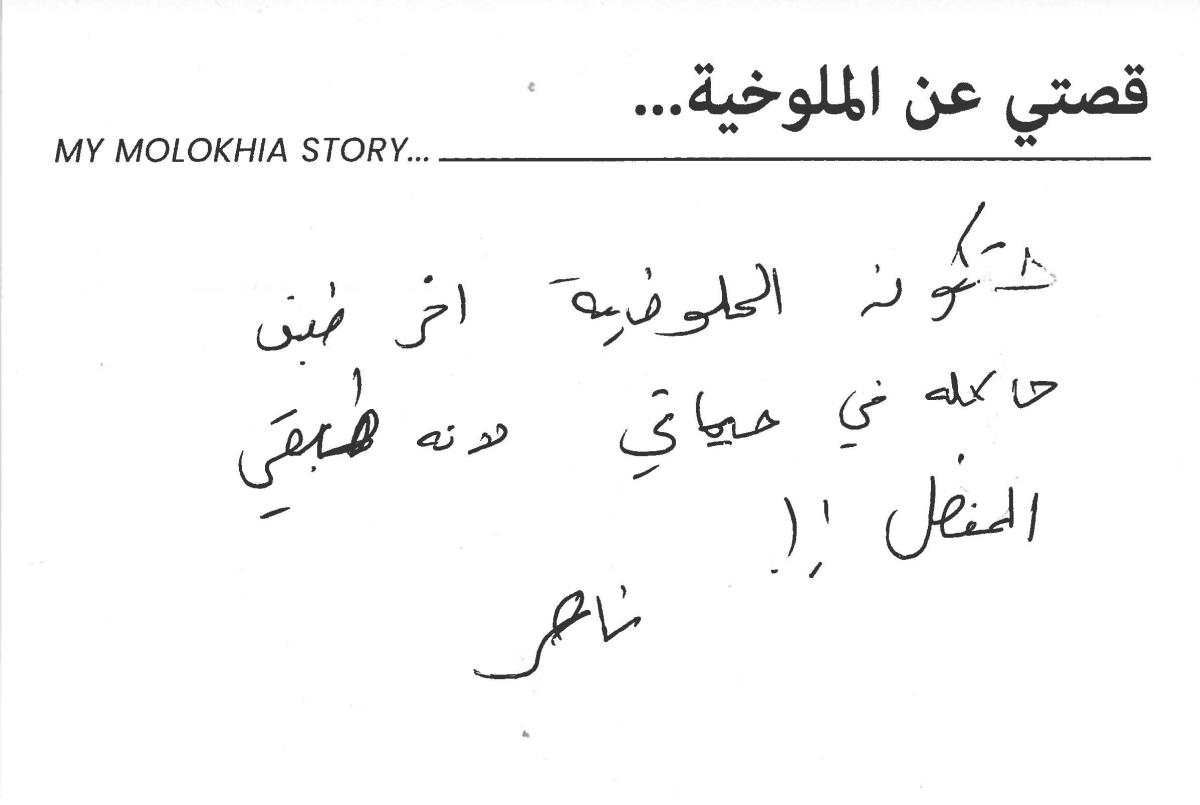 قصتي عن الملوخية...
MY MOLOKHIA STORY...
هتكون الملوخية اخر طبق
حاكله في حياتي لانه طبقي
المفضل !!
ناصر